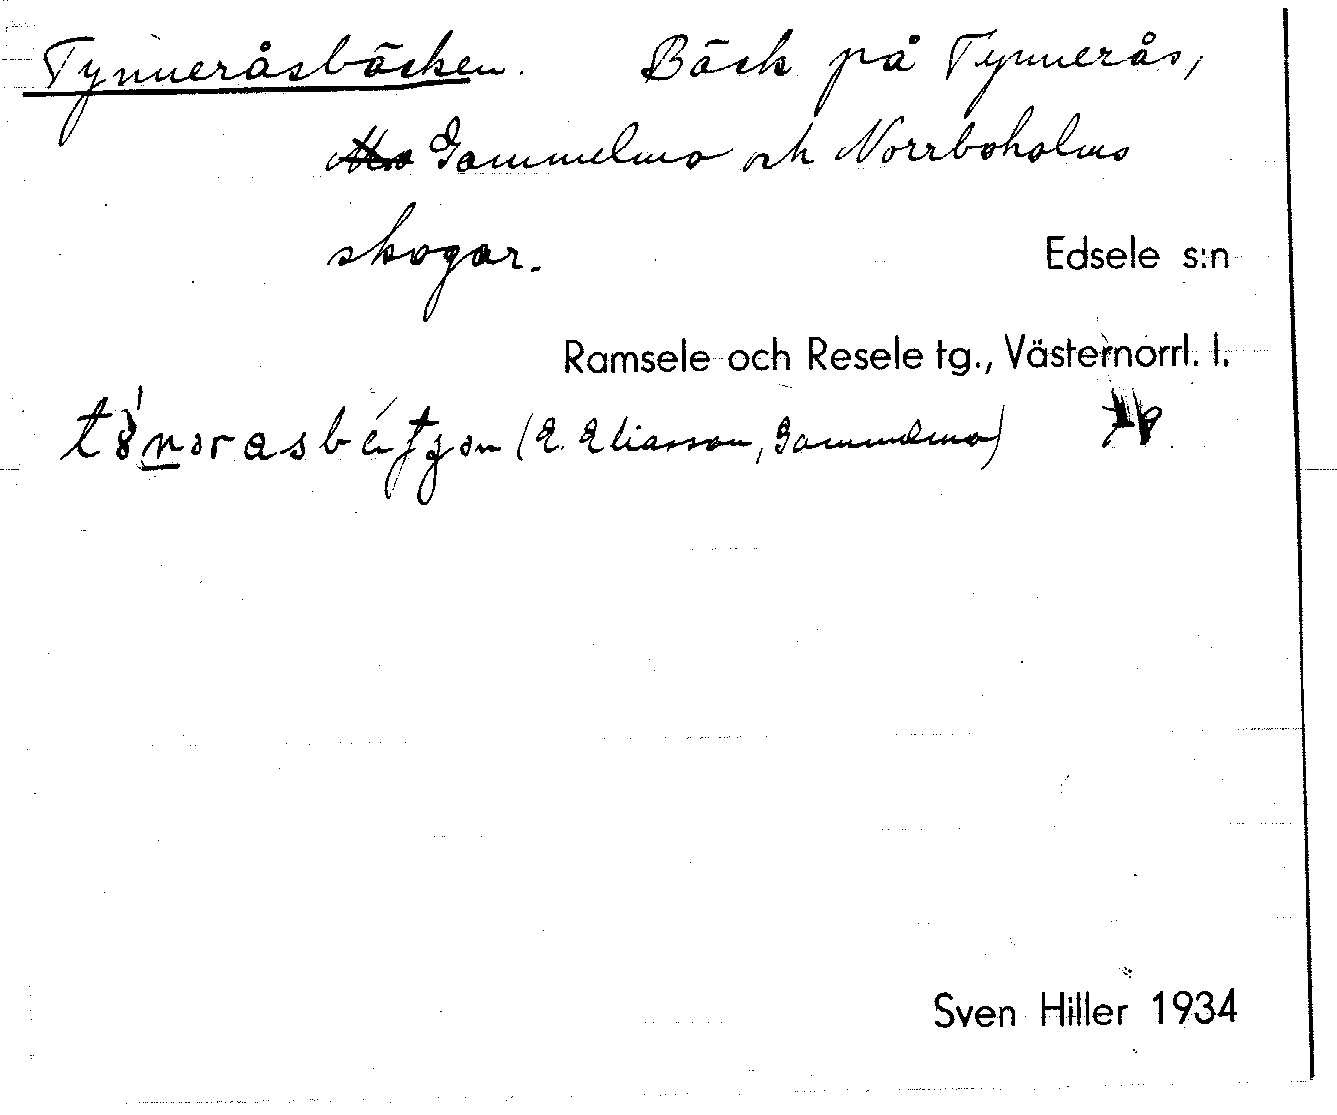 Tynneråsbäcken. Bäck på Tynnerås,
Gammelmo och Norrboholms
skogar.
Edsele s:n
Ramsele och Resele tg., Västernorrl. l.
(E. Eliasson, Gammelmo)
Sven Hiller 1934